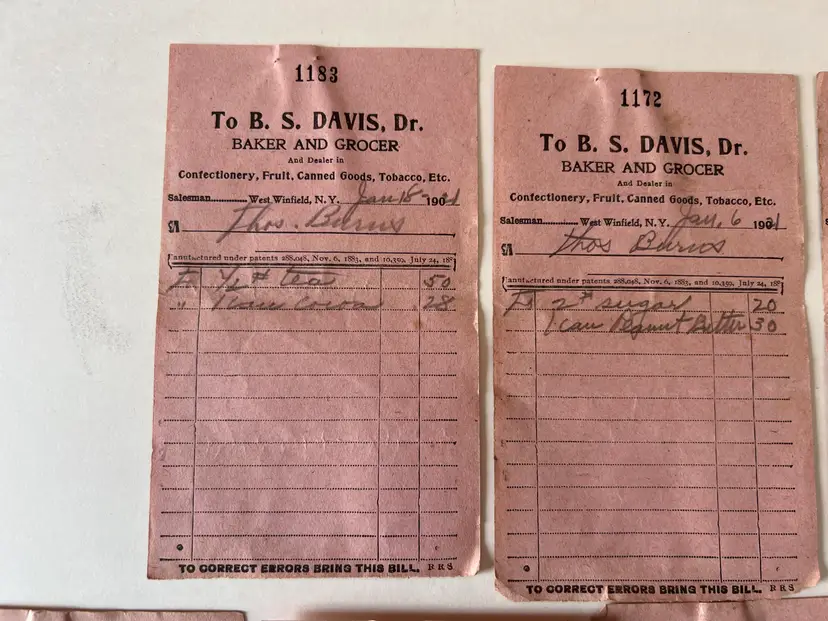 1183
To B. S. DAVIS, Dr.
BAKER AND GROCER
And Dealer in
Confectionery, Fruit, Canned Goods, Tobacco, Etc.
Salesman............ West Winfield, N. Y. Jan 18 1921
Thos. Burns
Manufactured under patents 288,048, Nov. 6, 1883, and 10,359, July 24, 188
To 1/2 # tea 50
" 1 can cocoa 28
TO CORRECT ERRORS BRING THIS BILL. R R S
1172
To B. S. DAVIS, Dr.
BAKER AND GROCER
And Dealer in
Confectionery, Fruit, Canned Goods, Tobacco, Etc.
Salesman............ West Winfield, N. Y. Jan. 6 1921
Thos Burns
Manufactured under patents 288,048, Nov. 6, 1883, and 10,359, July 24, 188
To 2 # sugar 20
1 can Peanut Butter 30
TO CORRECT ERRORS BRING THIS BILL. R R S